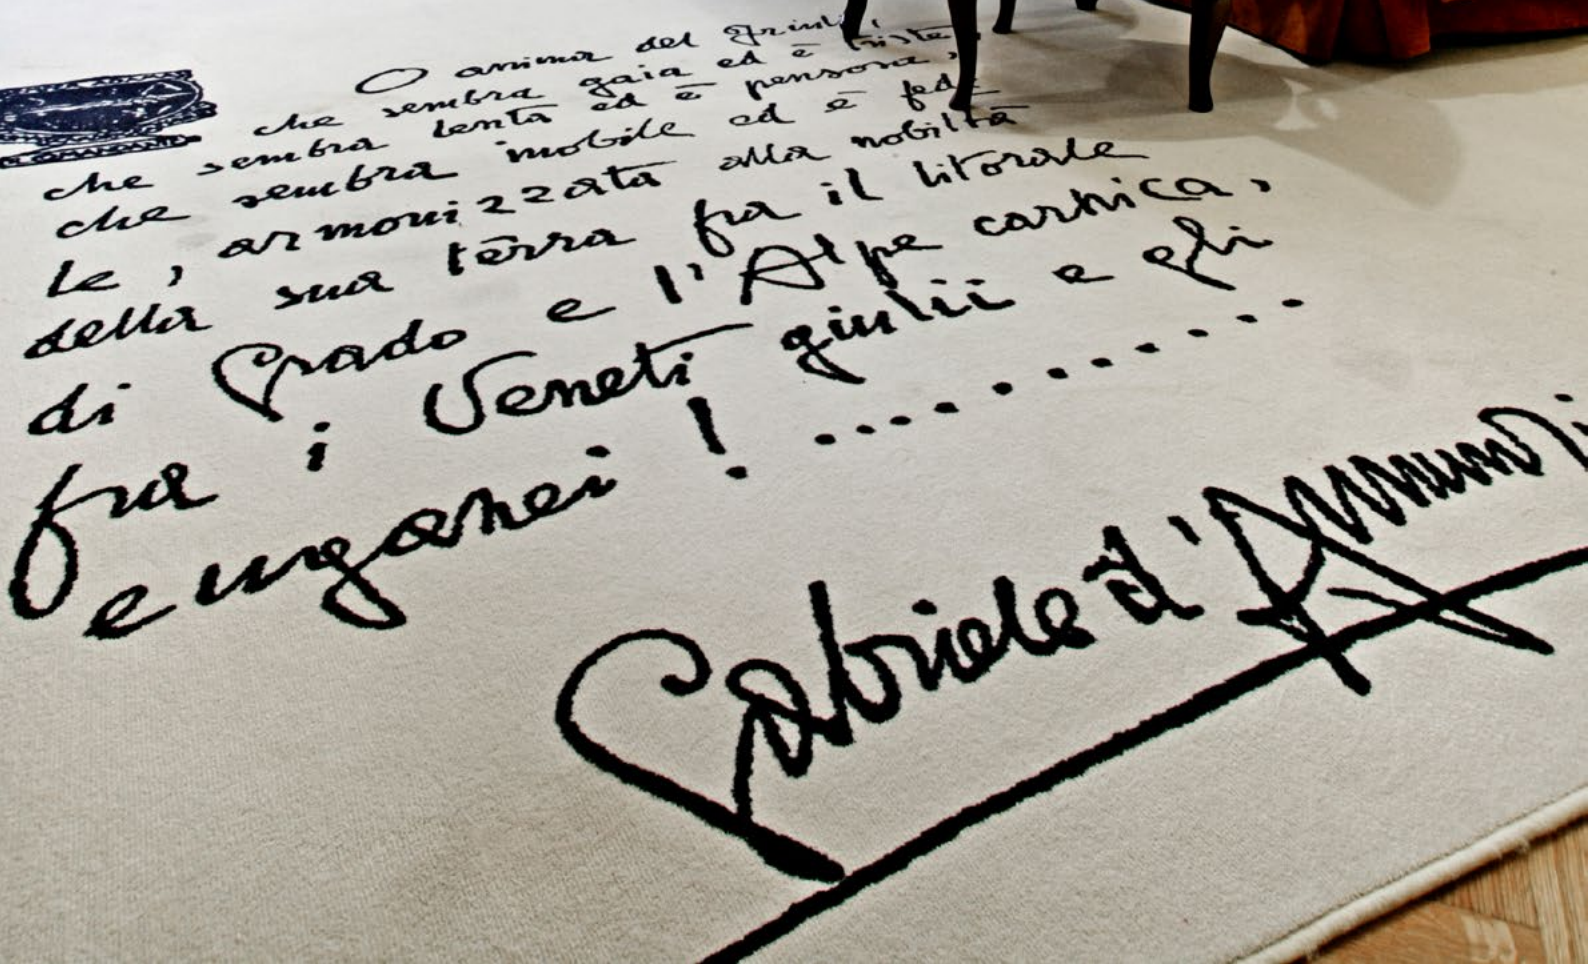 O anima del Friuli,
che sembra gaia ed è triste,
che sembra lenta ed è pensosa,
che sembra imobile ed è fede
le, armonizzata alla nobiltà
della sua terra fra il litorale
di Grado e l'Alpe carnica,
fra i Veneti giulii e gli
euganei! ...........
Gabriele d'Annunzi